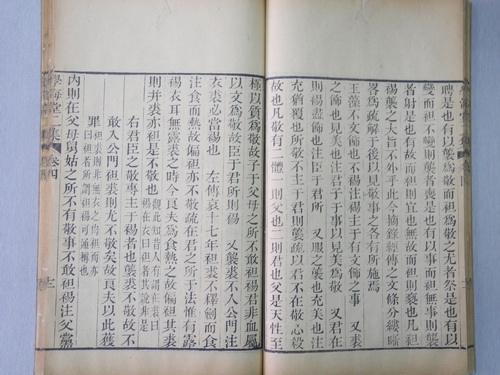 聘是也有以襲爲敬而袒爲敬之尤者祭是也有以
變而袒不變則襲者喪是也有以事而袒無事則襲
者射是也有故而袒則宜也無故而袒則褻也凡袒
裼襲之大旨不外乎此今摘錄經傳之文條分縷晰
畧爲疏解于後以見敬事之各有所施焉
玉藻不文飾也不裼注裼主于有文飾之事 又裘
之裼也見美也注君子于事以見美爲敬 又君在
則裼盡飾也注臣于君所 又服之襲也充美也注
充猶覆也所敬不主于君則襲疏以君不在敬心殺
故也凡敬有二體一則父也二則君也父是天性至
極以質爲敬故子于父母之所不敢袒裼君非血屬
以文爲敬故臣于君所則裼 又襲裘不入公門注
衣裘必當裼也 左傳哀十七年袒裘不釋劒而食
注食而熱故偏袒亦不敬疏在君之所于法惟有露
裼衣耳無露裘之時今良夫爲食熱之故偏袒其裘
則并裘亦袒是不敬也 觀此知昔人有謂在裘曰
裼在衣曰袒者其說非是
右君臣之敬專主于裼者也襲裘不敬故不
敢入公門袒裘則尤不敬矣故良夫以此獲
罪
曰袒者所謂袒裼可通稱也
內則在父母舅姑之所不有敬事不敢袒裼注父黨
學海堂二集 卷四